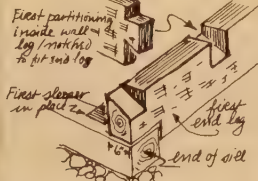 First partitioning
inside wall
log notched
to fit end log
First sleeper
in place
first
end log
6"
end of sill